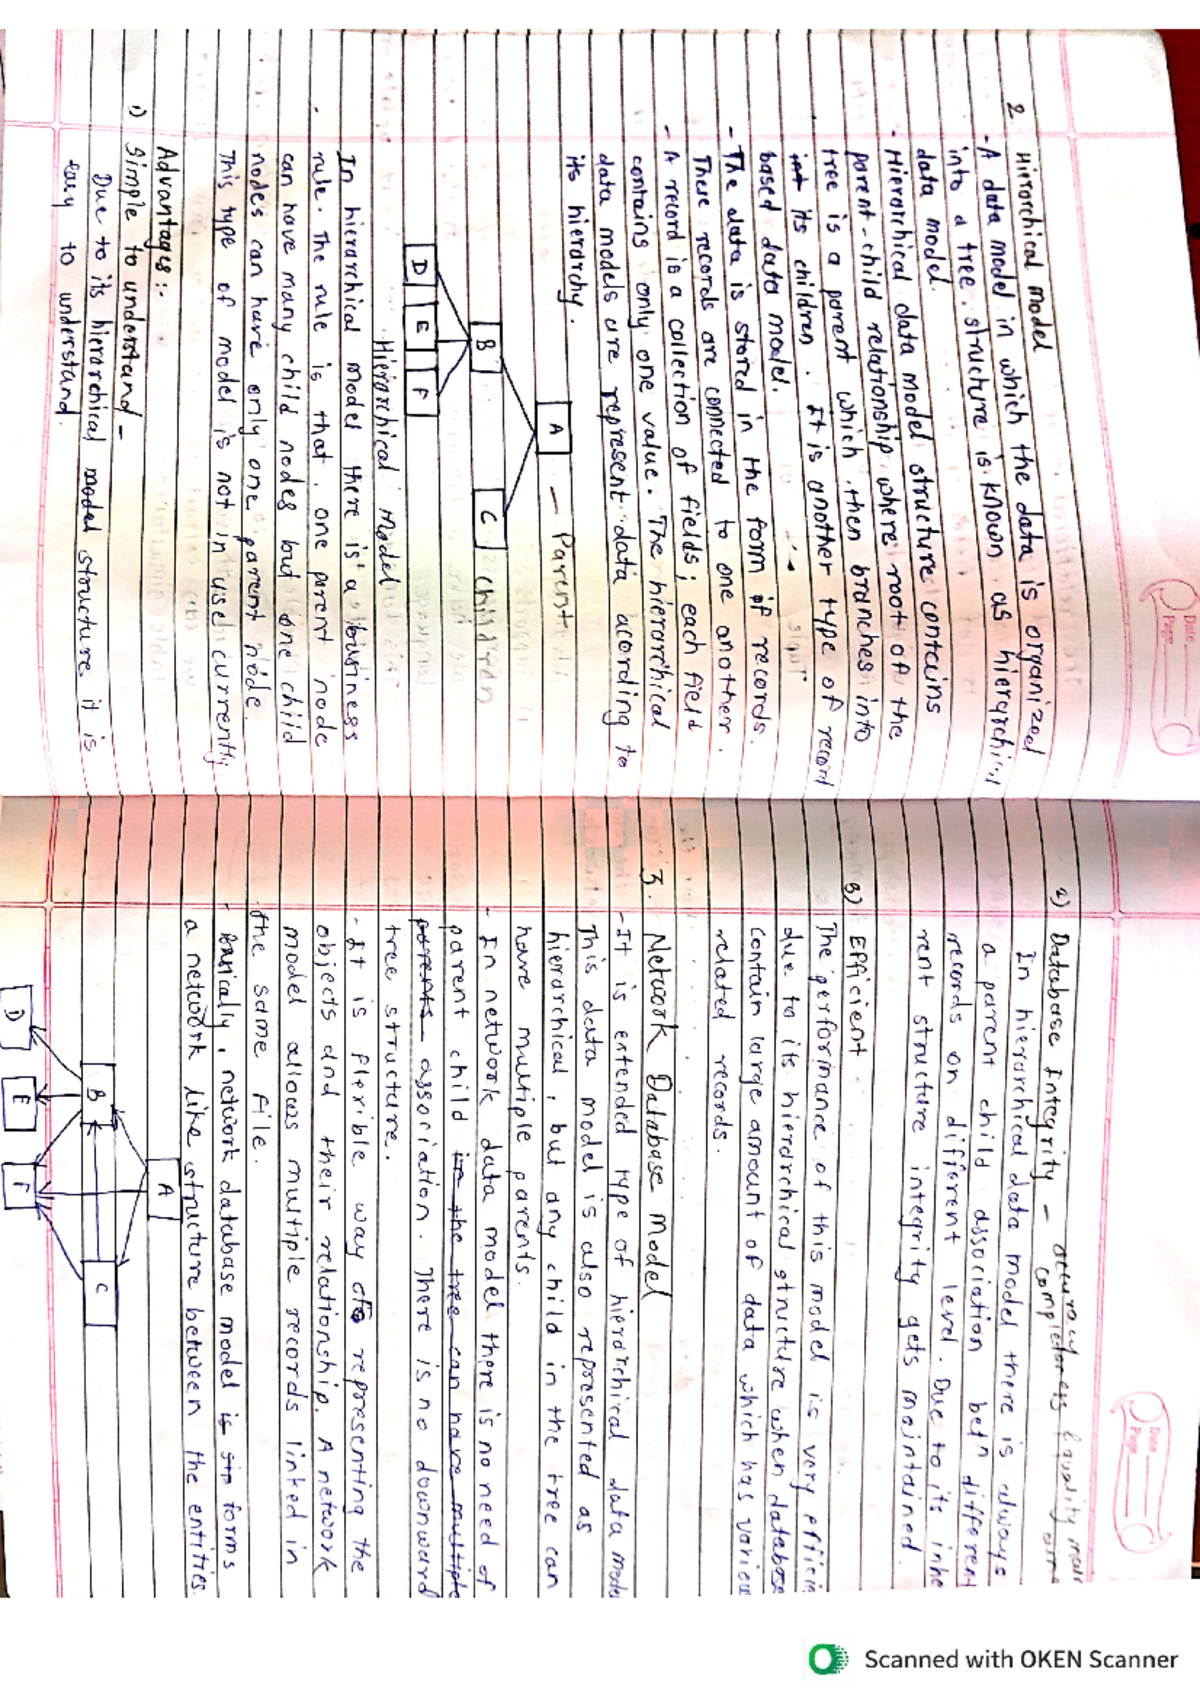 Date
Page
2 Hirarchical model
- A data model in which the data is organized
into a tree structure is known as hierarchical
data model.
- Hierarchical data model structure contains
parent-child relationship where root of the
tree is a parent which then branches into
its children. It is another type of record
based data model.
- The data is stored in the form of records.
There records are connected to one another.
- A record is a collection of fields; each field
contains only one value. The hierarchical
data models are represent data acording to
its hierarchy.
A — Parent
B C children
D E F
Hierarchical model
In hierarchical model there is a business
rule. The rule is that one parent node
can have many child nodes but one child
nodes can have only one parent node.
This type of model is not in use currently
Advantages:-
1) Simple to understand -
Due to its hierarchical model structure it is
easy to understand.
Date
Page
2) Database Integrity - accuracy
completeness & quality
In hierarchical data model there is always
a parent child association betn different
records on different level. Due to its inhe
rent structure integrity gets maintained.
3) Efficient
The performance of this model is very efficie
due to its hierarchical structure when database
contain large amount of data which has variou
related records.
3. Network Database Model
- It is extended type of hierarchical data model
This data model is also represented as
hierarchical, but any child in the tree can
have multiple parents.
- In network data model there is no need of
parent child in the tree can have multiple
parents association. There is no downward
tree structure.
- It is flexible way of representing the
objects and their relationship. A network
model allows multiple records linked in
the same file.
- Basically, network database model is forms
a network like structure between the entities.
A
B C
D E F
Scanned with OKEN Scanner